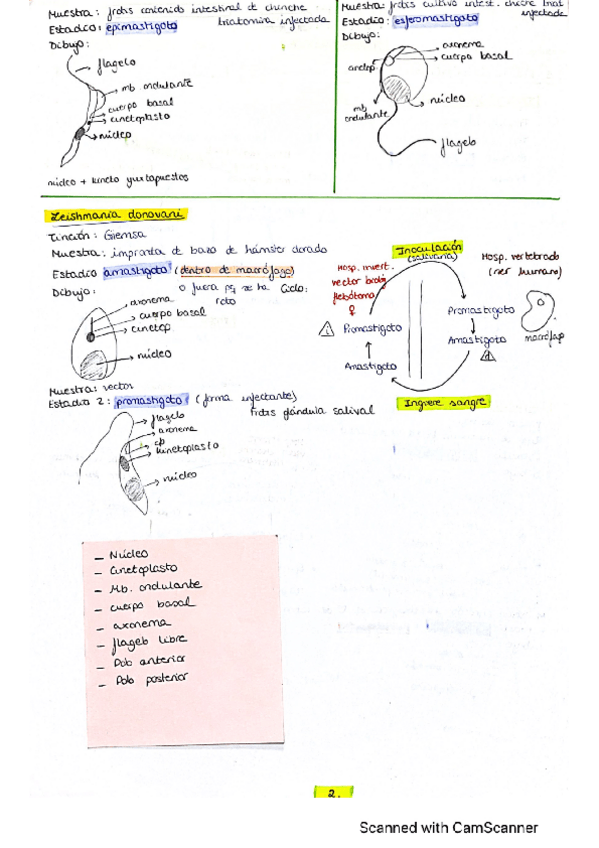 Muestra: frotis contenido intestinal de chinche
triatomina infectada
Estadio: epimastigoto
Dibujo:
flagelo
mb ondulante
cuerpo basal
cinetoplasto
núcleo
núcleo + kineto yuxtapuestos
Muestra: frotis cultivo intest. chinche triat
infectada
Estadio: esferomastigoto
Dibujo:
axonema
cuerpo basal
cinetop
núcleo
mb
ondulante
flagelo
Leishmania donovani
Tinción: Giemsa
Muestra: impronta de bazo de hámster dorado
Estadio amastigoto (dentro de macrófago)
o fuera pq se ha
roto
Dibujo:
axonema
cuerpo basal
cinetop
núcleo
Ciclo:
Inoculación
(salivaria)
Hosp. invert.
vector biolo
flebótomo
♀
Hosp. vertebrado
(ser humano)
Promastigoto
Promastigoto
macrófago
Amastigoto
Amastigoto
Ingiere sangre
Muestra: vector
Estadio 2: promastigoto (forma infectante)
frotis glándula salival
flagelo
axonema
cp
kinetoplasto
núcleo
– Núcleo
– Cinetoplasto
– Mb. ondulante
– cuerpo basal
– axonema
– flagelo libre
– Polo anterior
– Polo posterior
2.
Scanned with CamScanner